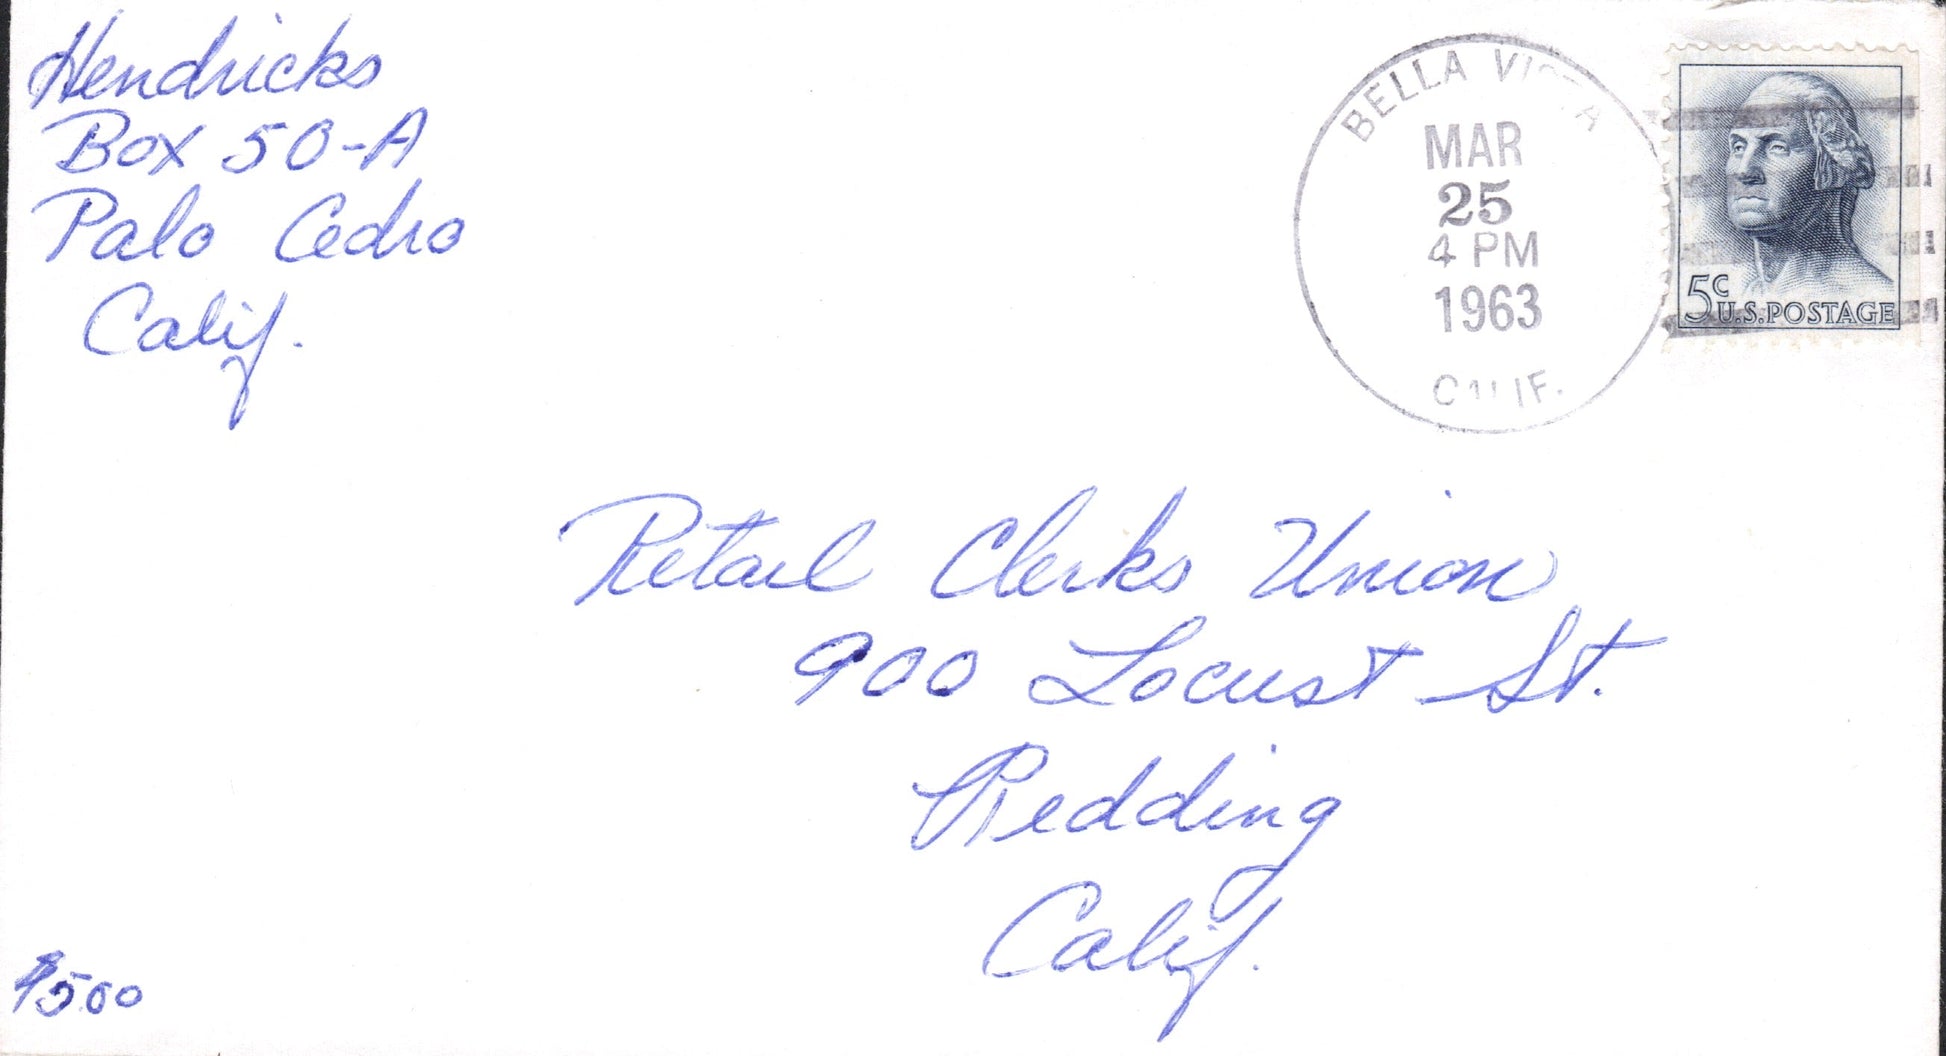 Hendricks
Box 50-A
Palo Cedro
Calif.
BELLA VISTA
MAR
25
4 PM
1963
CALIF.
5c
U.S. POSTAGE
Retail Clerks Union
900 Locust St.
Redding
Calif.
$5.00